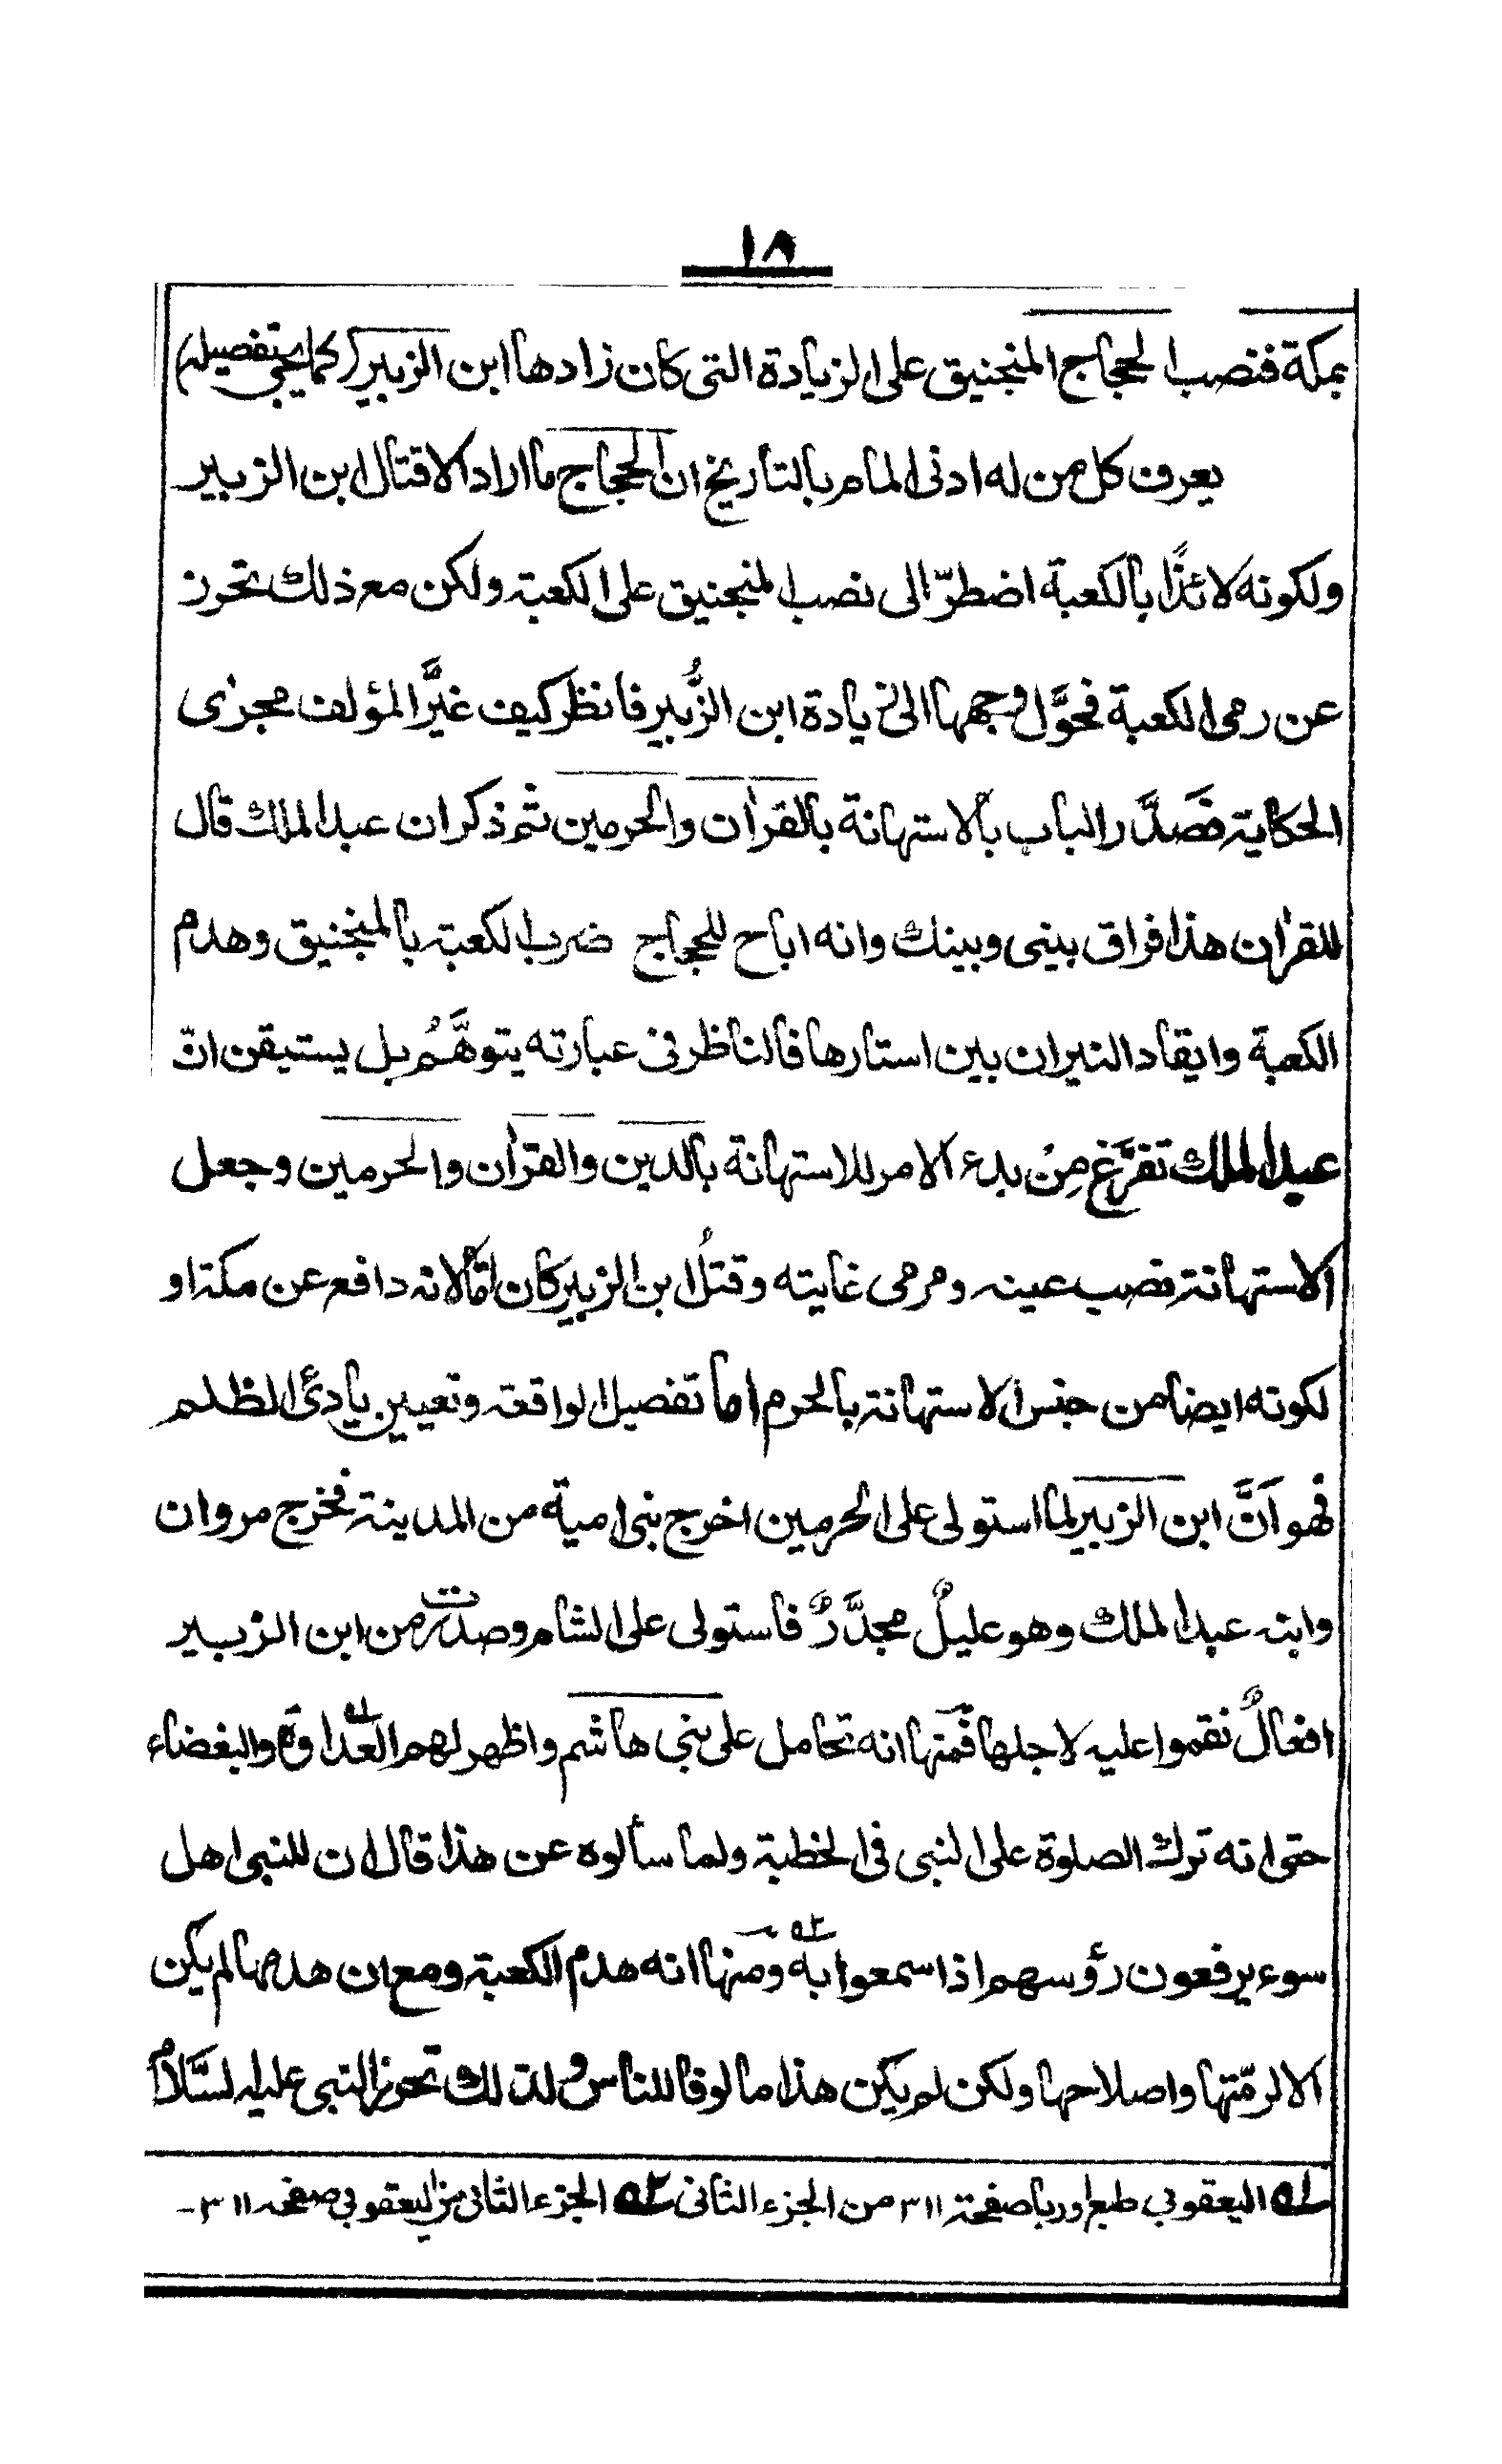 ١٨
بمكة فنصب الحجاج المنجنيق على الزيادة التى كان زادها ابن الزبير (كما يجيئ تفصيله)
يعرف كل من له ادنى المام بالتاريخ ان الحجاج ما اراد الا قتال ابن الزبير
ولكونه لائذًا بالكعبة اضطرّ الى نصب المنجنيق على الكعبة ولكن مع ذلك تحرز
عن رمى الكعبة فحوَّل وجهها الى زيادة ابن الزُّبير فانظر كيف غيَّر المؤلف مجرى
الحكاية فصَدَّر الباب بالاستهانة بالقرأن والحرمين ثم ذكر ان عبد الملك قال
للقرأن هذا فراق بينى وبينك وانه اباح للحجاج ضرب الكعبة بالمنجنيق وهدم
الكعبة وايقاد النيران بين استارها فالناظر فى عبارته يتوهَّم بل يستيقن انّ
عبد الملك تفرَّغ مِنْ بدء الامر للاستهانة بالدين والقرأن والحرمين وجعل
الاستهانة نصب عينه ومرمى غايته وقتلُ ابن الزبير كان امّا لانه دافع عن مكة او
لكونه ايضا من جنس الاستهانة بالحرم اما تفصيل الواقعة وتعيين بادئ الظلم
فهو اَنَّ ابن الزبير لما استولى على الحرمين اخرج بنى امية من المدينة فخرج مروان
وابنه عبد الملك وهو عليلٌ مجدَّرٌ فاستولى على الشام وصدرت من ابن الزبير
افعالٌ نقموا عليه لاجلها فمنها انه تحامل على بنى هاشم واظهر لهم العداوة والبغضاء
حتى انه ترك الصلوة على النبى فى الخطبة ولما سألوه عن هذا قال ان للنبى اهل
سوء يرفعون رؤسهم اذا سمعوا به ومنها انه هدم الكعبة ومع ان هدمها لم يكن
الا لرمّتها واصلاحها ولكن لم يكن هذا مالوفا للناس ولذلك تحرز النبى عليه السَّلام
له اليعقوبي طبع اوربا صفحة ٣١١ من الجزء الثانى ٢ه الجزء الثانى من اليعقوبي صفحه ٣١١-